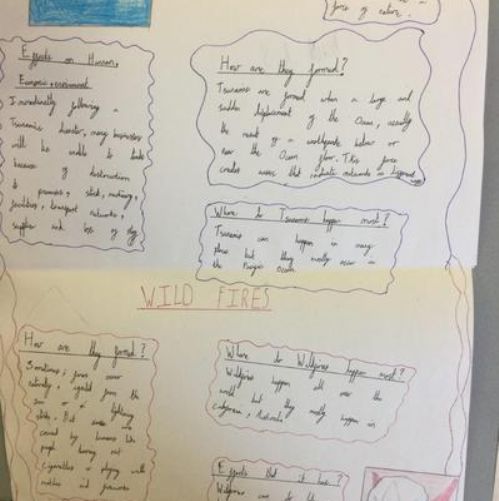 force of nature.
Effects on Humans,
Economic, environment
Immediately following a
Tsunami disaster, many businesses
will be unable to trade
because of destruction
to premises, stock, machinery,
facilities, transport networks,
supplies and loss of
How are they formed?
Tsunamis are formed when a large and
sudden displacement of the Ocean, usually
the result of a earthquake below or
near the Ocean floor. This force
creates waves that
Where do Tsunamis happen most?
Tsunamis can happen in many
place but they mostly occur in
the Ocean
WILD FIRES
How are they formed?
Sometimes, fires occur
naturally, ignited from the
sun or a lightning
strike. But some are
caused by humans like
people
cigarettes or playing with
matches and fireworks
Where do Wildfires happen most?
Wildfires happen all over the
world but they mostly happen in
Australia
Effects that it has?
Wildfires can